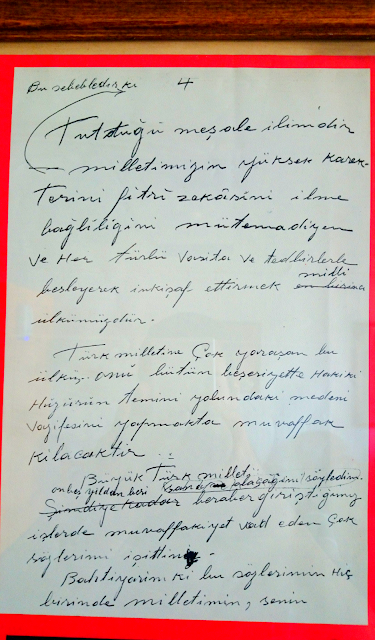 Bu sebebledir ki 4
Tuttuğu meşale ilimdir
milletimizin yüksek karek-
terini fitrî zekâsini ilme
bağliliğini mütemadiyen
ve Her türlü vasita ve tedbirlerle
milli
besleyerek inkişaf ettirmek
ülkümüzdür.
Türk milletine Çok yaraşan bu
ülkü, onu bütün beşeriyette Hakiki
Huzurun temini yolundaki medeni
vazifesini yapmakta muvaffak
Kilacaktir.
Büyük Türk milleti
onbeş yildan beri söyledim.
Şimdiye kadar beraber giriştiğimiz
islerde muvaffakiyet vad eden Çok
sözlerimi işittin
Bahtiyarim ki bu sözlerimin Hiç
birinde milletimin, senin